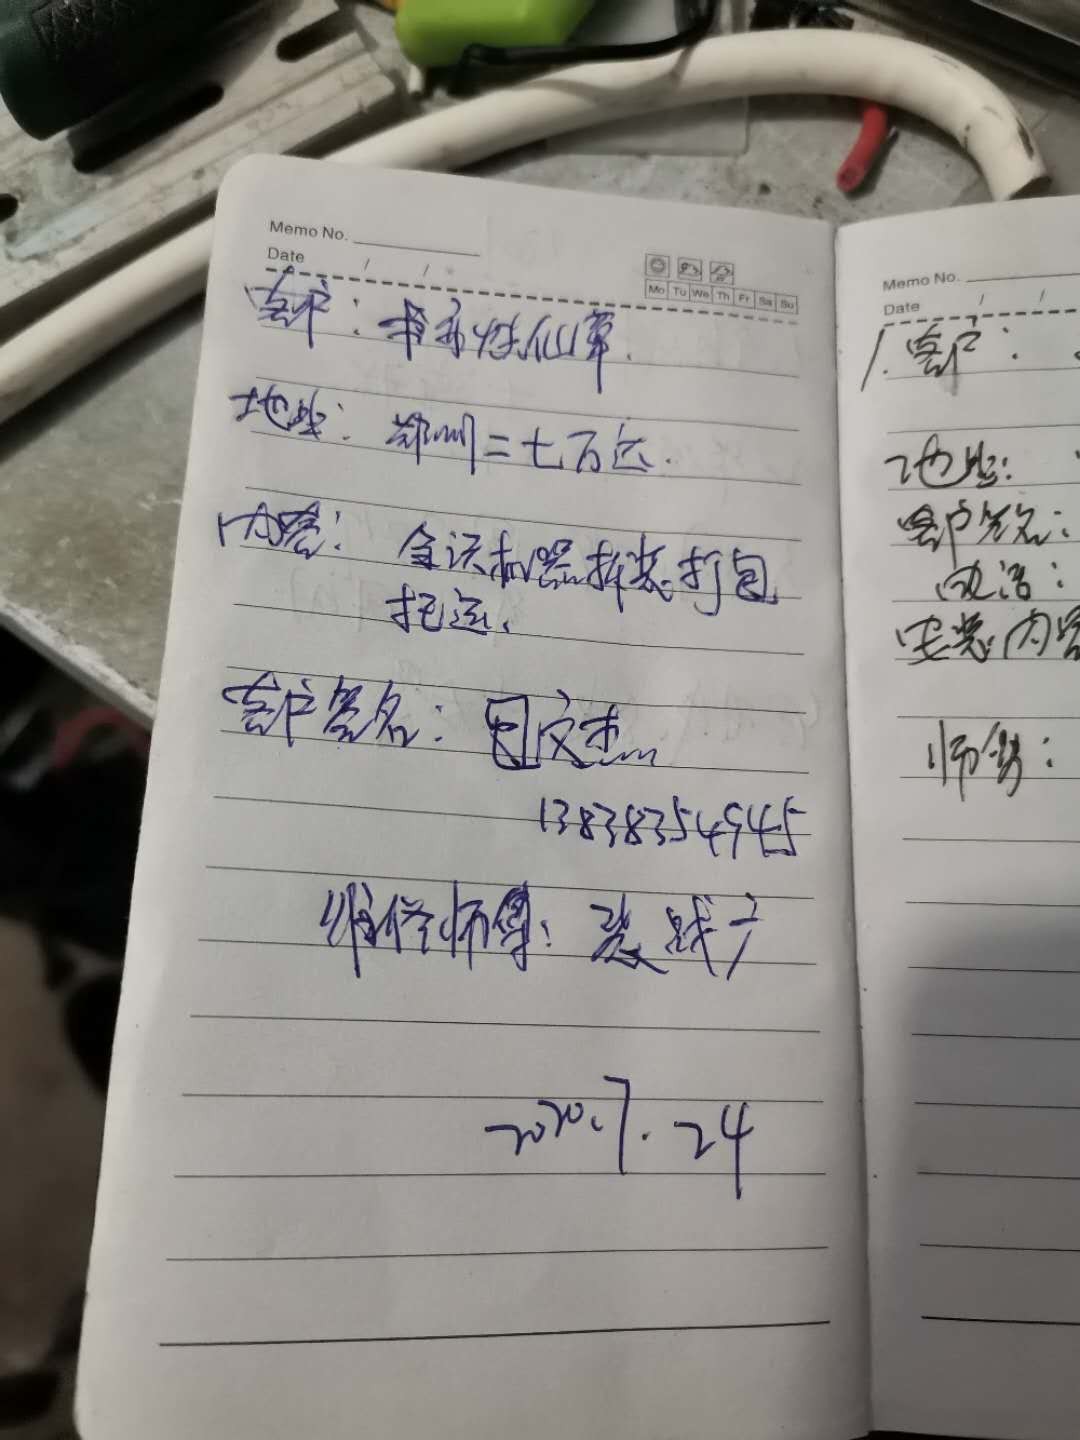 Memo No.
Date / /
Mo Tu We Th Fr Sa Su
客户：书亦烧仙草.
地址：郑州二七万达.
内容：全店机器拆装打包
托运.
客户签名：
13838354945
维修师傅：
2020.7.24
Memo No.
Date / /
1.客户：
地址：
客户签名：
电话：
安装内容
师傅：